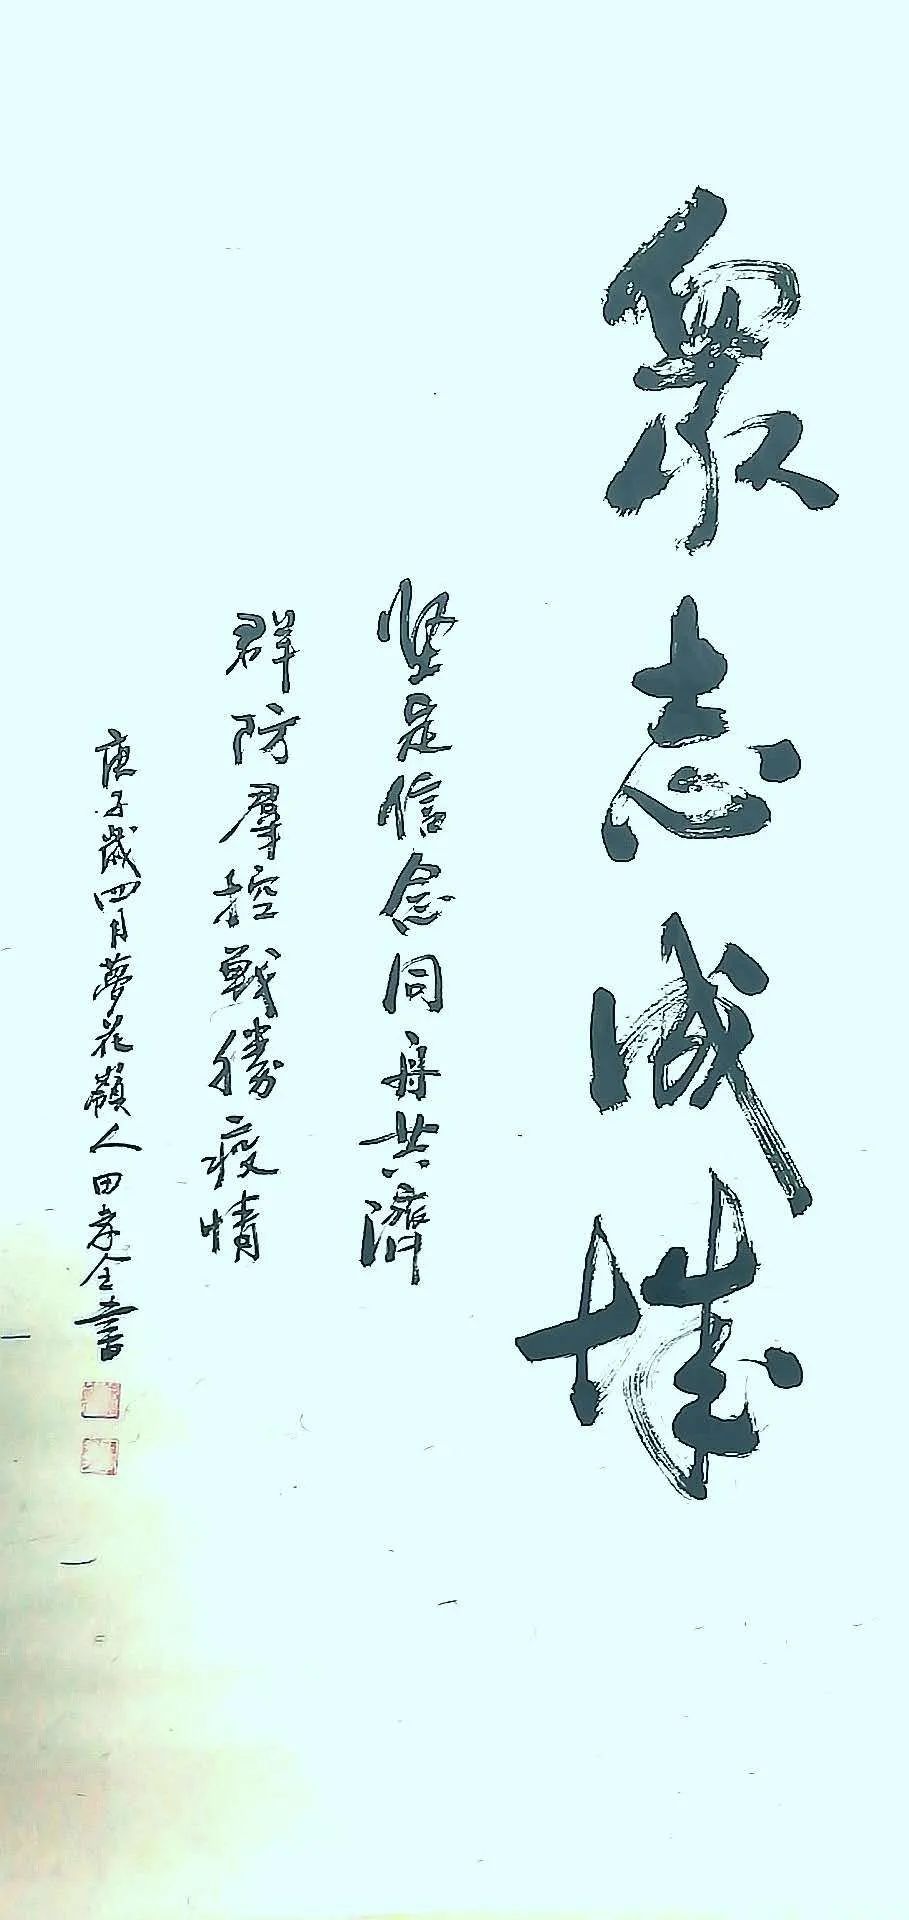 衆志成城
坚定信念同舟共濟
群防羣控戰勝疫情
庚子歲四月夢花嶺人田孝全書